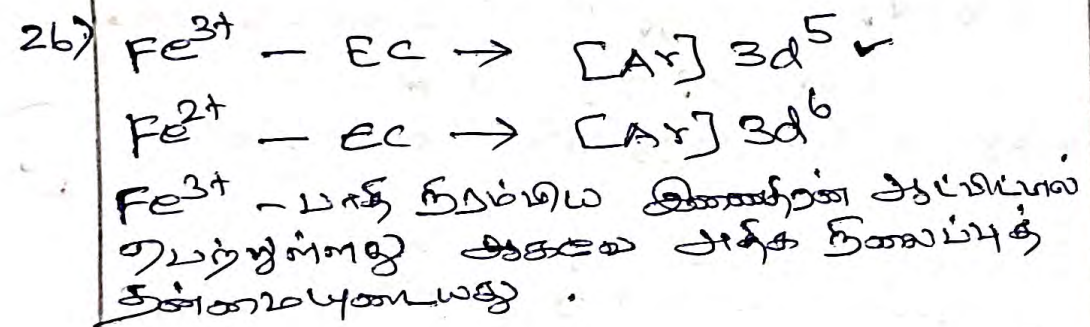 26) Fe³⁺ – EC → [Ar] 3d⁵ ✓
Fe²⁺ – EC → [Ar] 3d⁶
Fe³⁺ – பாதி நிரம்பிய இணைதிறன் ஆட்பிட்டால்
பெற்றுள்ளது ஆகவே அதிக நிலைப்புத்
தன்மையுடையது .